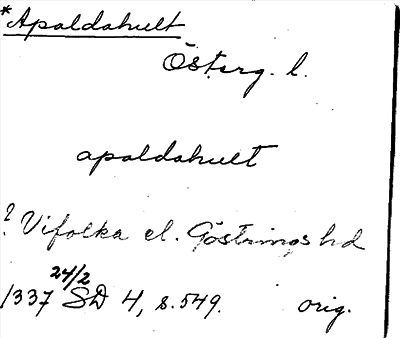 *Apaldahult
Österg. l.
apaldahult
? Vifolka el. Göstrings hd
1337 24/2 SD 4, s. 549. orig.